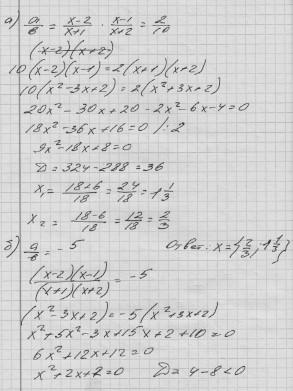 а) a/b = (x-2)/(x+1) · (x-1)/(x+2) = 2/10
(x-2)(x+2)
10(x-2)(x-1)=2(x+1)(x+2)
10(x²-3x+2)=2(x²+3x+2)
20x²-30x+20-2x²-6x-4=0
18x²-36x+16=0 /:2
9x²-18x+8=0
D=324-288=36
x₁=(18+6)/18=24/18=1 1/3
x₂=(18-6)/18=12/18=2/3
б) a/b=-5 Ответ: x={2/3; 1 1/3}
((x-2)(x-1))/((x+1)(x+2))=-5
(x²-3x+2)=-5(x²+3x+2)
x²+5x²-3x+15x+2+10=0
6x²+12x+12=0
x²+2x+2=0 D=4-8<0